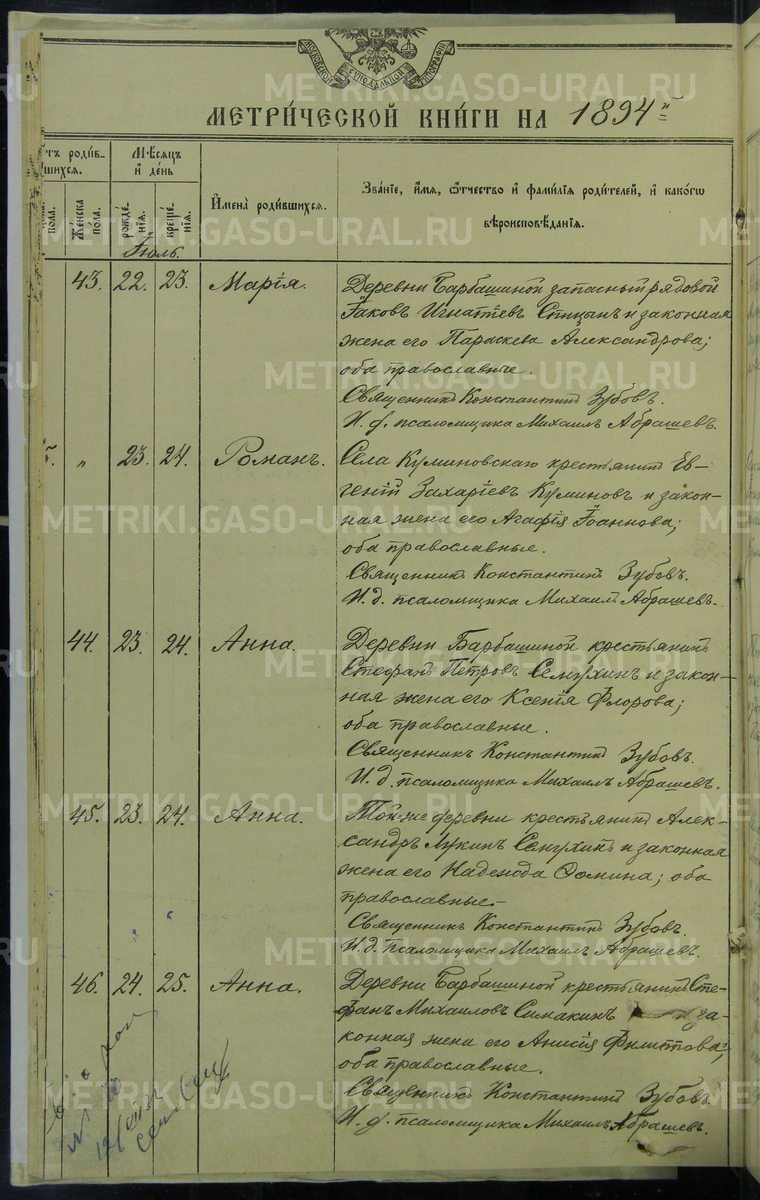 МОСКОВСКОЙ СѴНОДАЛЬНОЙ ТИПОГРАФІИ
МЕТРИ́ЧЕСКОЙ КНИ́ГИ НА 1894
тъ роди́в-
шихся.
Мѣсяцъ
и҆ день
И҆мена̀ роди́вшихся.
Зва́нїе, и҆́мя, ѻ҆́тчество и҆ фами́лїя роди́телей, и҆ како́гѡ
вѣроисповѣ́данїя.
пола.
Же́нска
пола.
рожде́-
нїя.
креще́-
нїя.
Іюль.
43. 22. 23. Марія. Деревни Барбашиной запасный рядовой
Іаковъ Игнатіевъ Спицынъ и законная
жена его Параскева Александрова;
оба православные.
Священникъ Константинъ Зубовъ.
И. д. псаломщика Михаилъ Абрашевъ.
„ 23. 24. Романъ. Села Куминовскаго крестьянинъ Ев-
геній Захаріевъ Куминовъ и закон-
ная жена его Агафія Іоаннова;
оба православные.
Священникъ Константинъ Зубовъ.
И. д. псаломщика Михаилъ Абрашевъ.
44. 23. 24. Анна. Деревни Барбашиной крестьянинъ
Стефанъ Петровъ Семухинъ и закон-
ная жена его Ксенія Флорова;
оба православные.
Священникъ Константинъ Зубовъ.
И. д. псаломщика Михаилъ Абрашевъ.
45. 23. 24. Анна. Той-же деревни крестьянинъ Алек-
сандръ Лукинъ Семухинъ и законная
жена его Надежда Ѳомина; оба
православные.-
Священникъ Константинъ Зубовъ.
И. д. псаломщика Михаилъ Абрашевъ.
46. 24. 25. Анна. Деревни Барбашиной крестьянинъ Сте-
фанъ Михаиловъ Симакинъ и за-
конная жена его Анисія Филитова;
оба православные.
Священникъ Константинъ Зубовъ.
И. д. псаломщика Михаилъ Абрашевъ.
METRIKI.GASO-URAL.RU